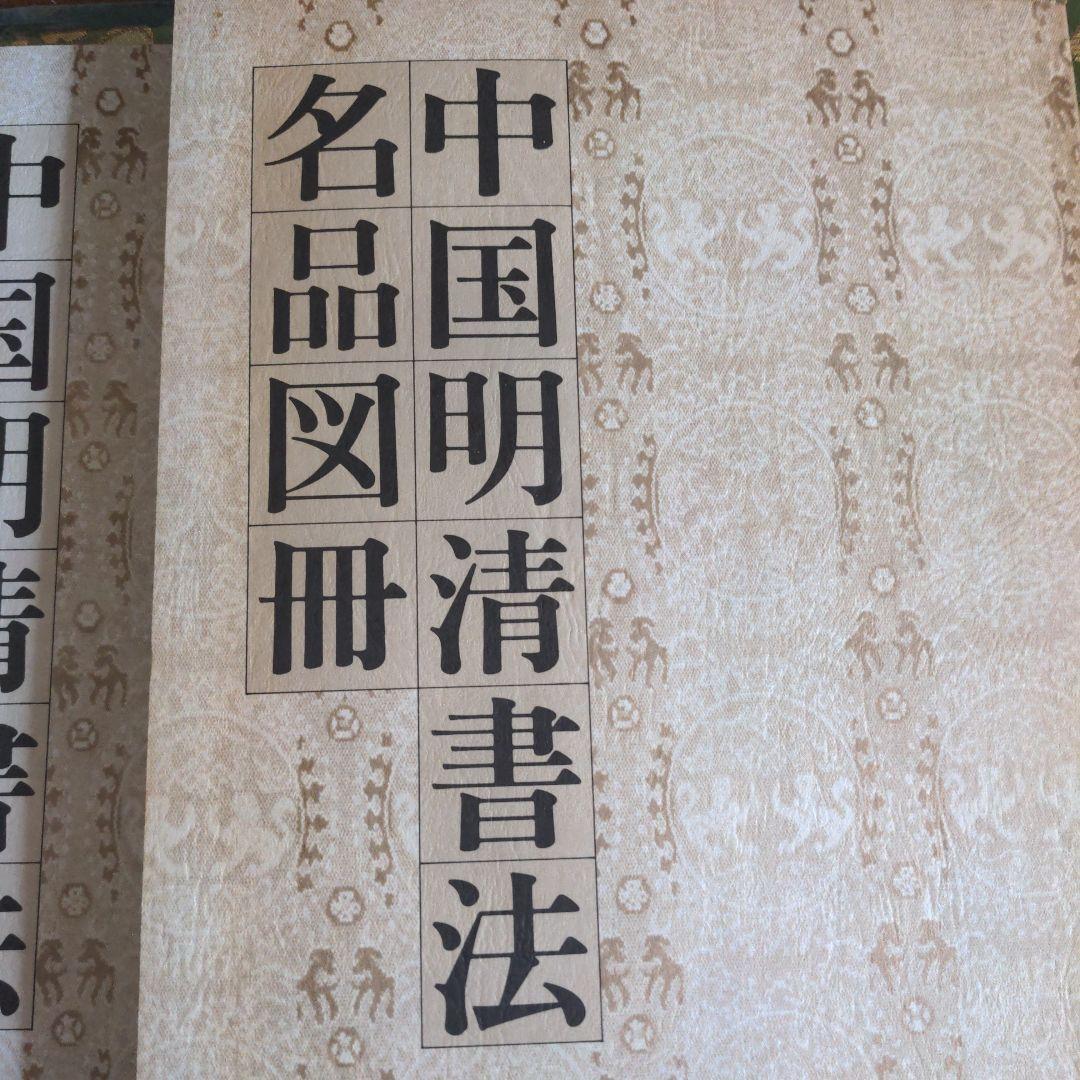 中国明清書法
名品図冊
中国明清書法